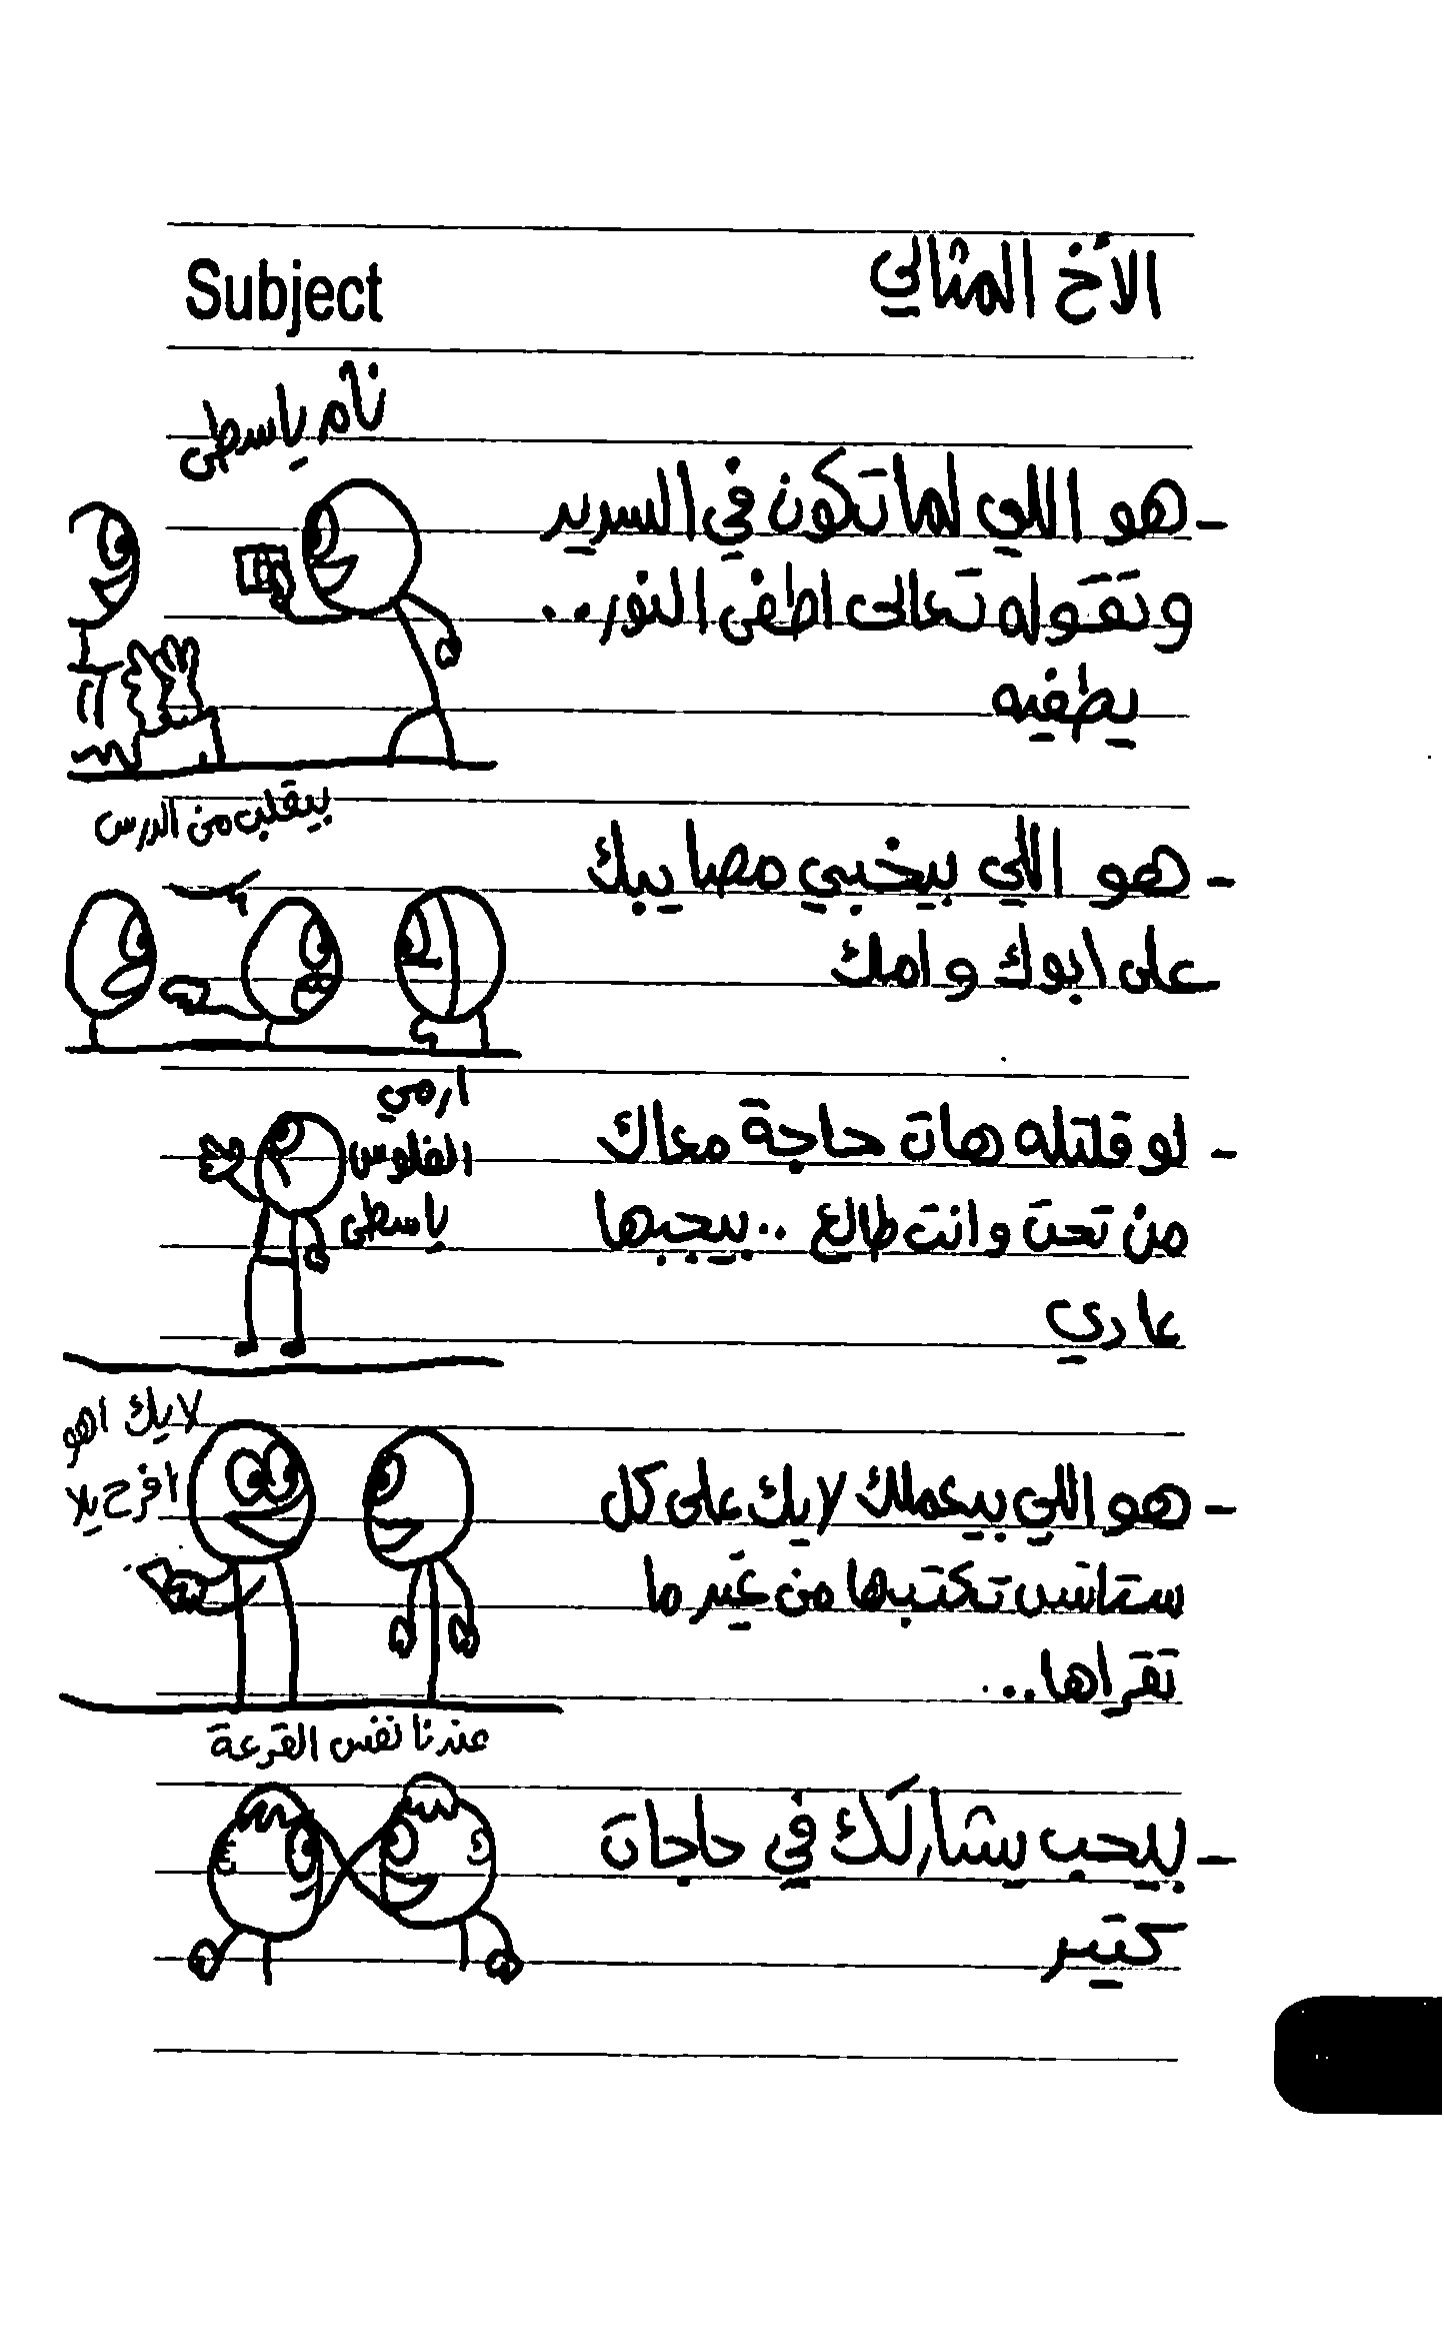 Subject
الأخ المثالي
نام ياسطى
- هو اللي لما تكون في السرير
وتقوله تعالى اطفى النور..
يطفيه
بيقلب من الدرس
- هو اللي بيخبي مصايبك
على ابوك وامك
ارمي
الفلوس
ياسطى
- لو قلتله هات حاجة معاك
من تحت وانت طالع .. بيجبها
عادي
لايك اهو
افرح يلا
- هو اللي بيعملك لايك على كل
ستاتس تكتبها من غير ما
تقراها...
عندنا نفس القرعة
- بيحب يشاركك في حاجات
كتير